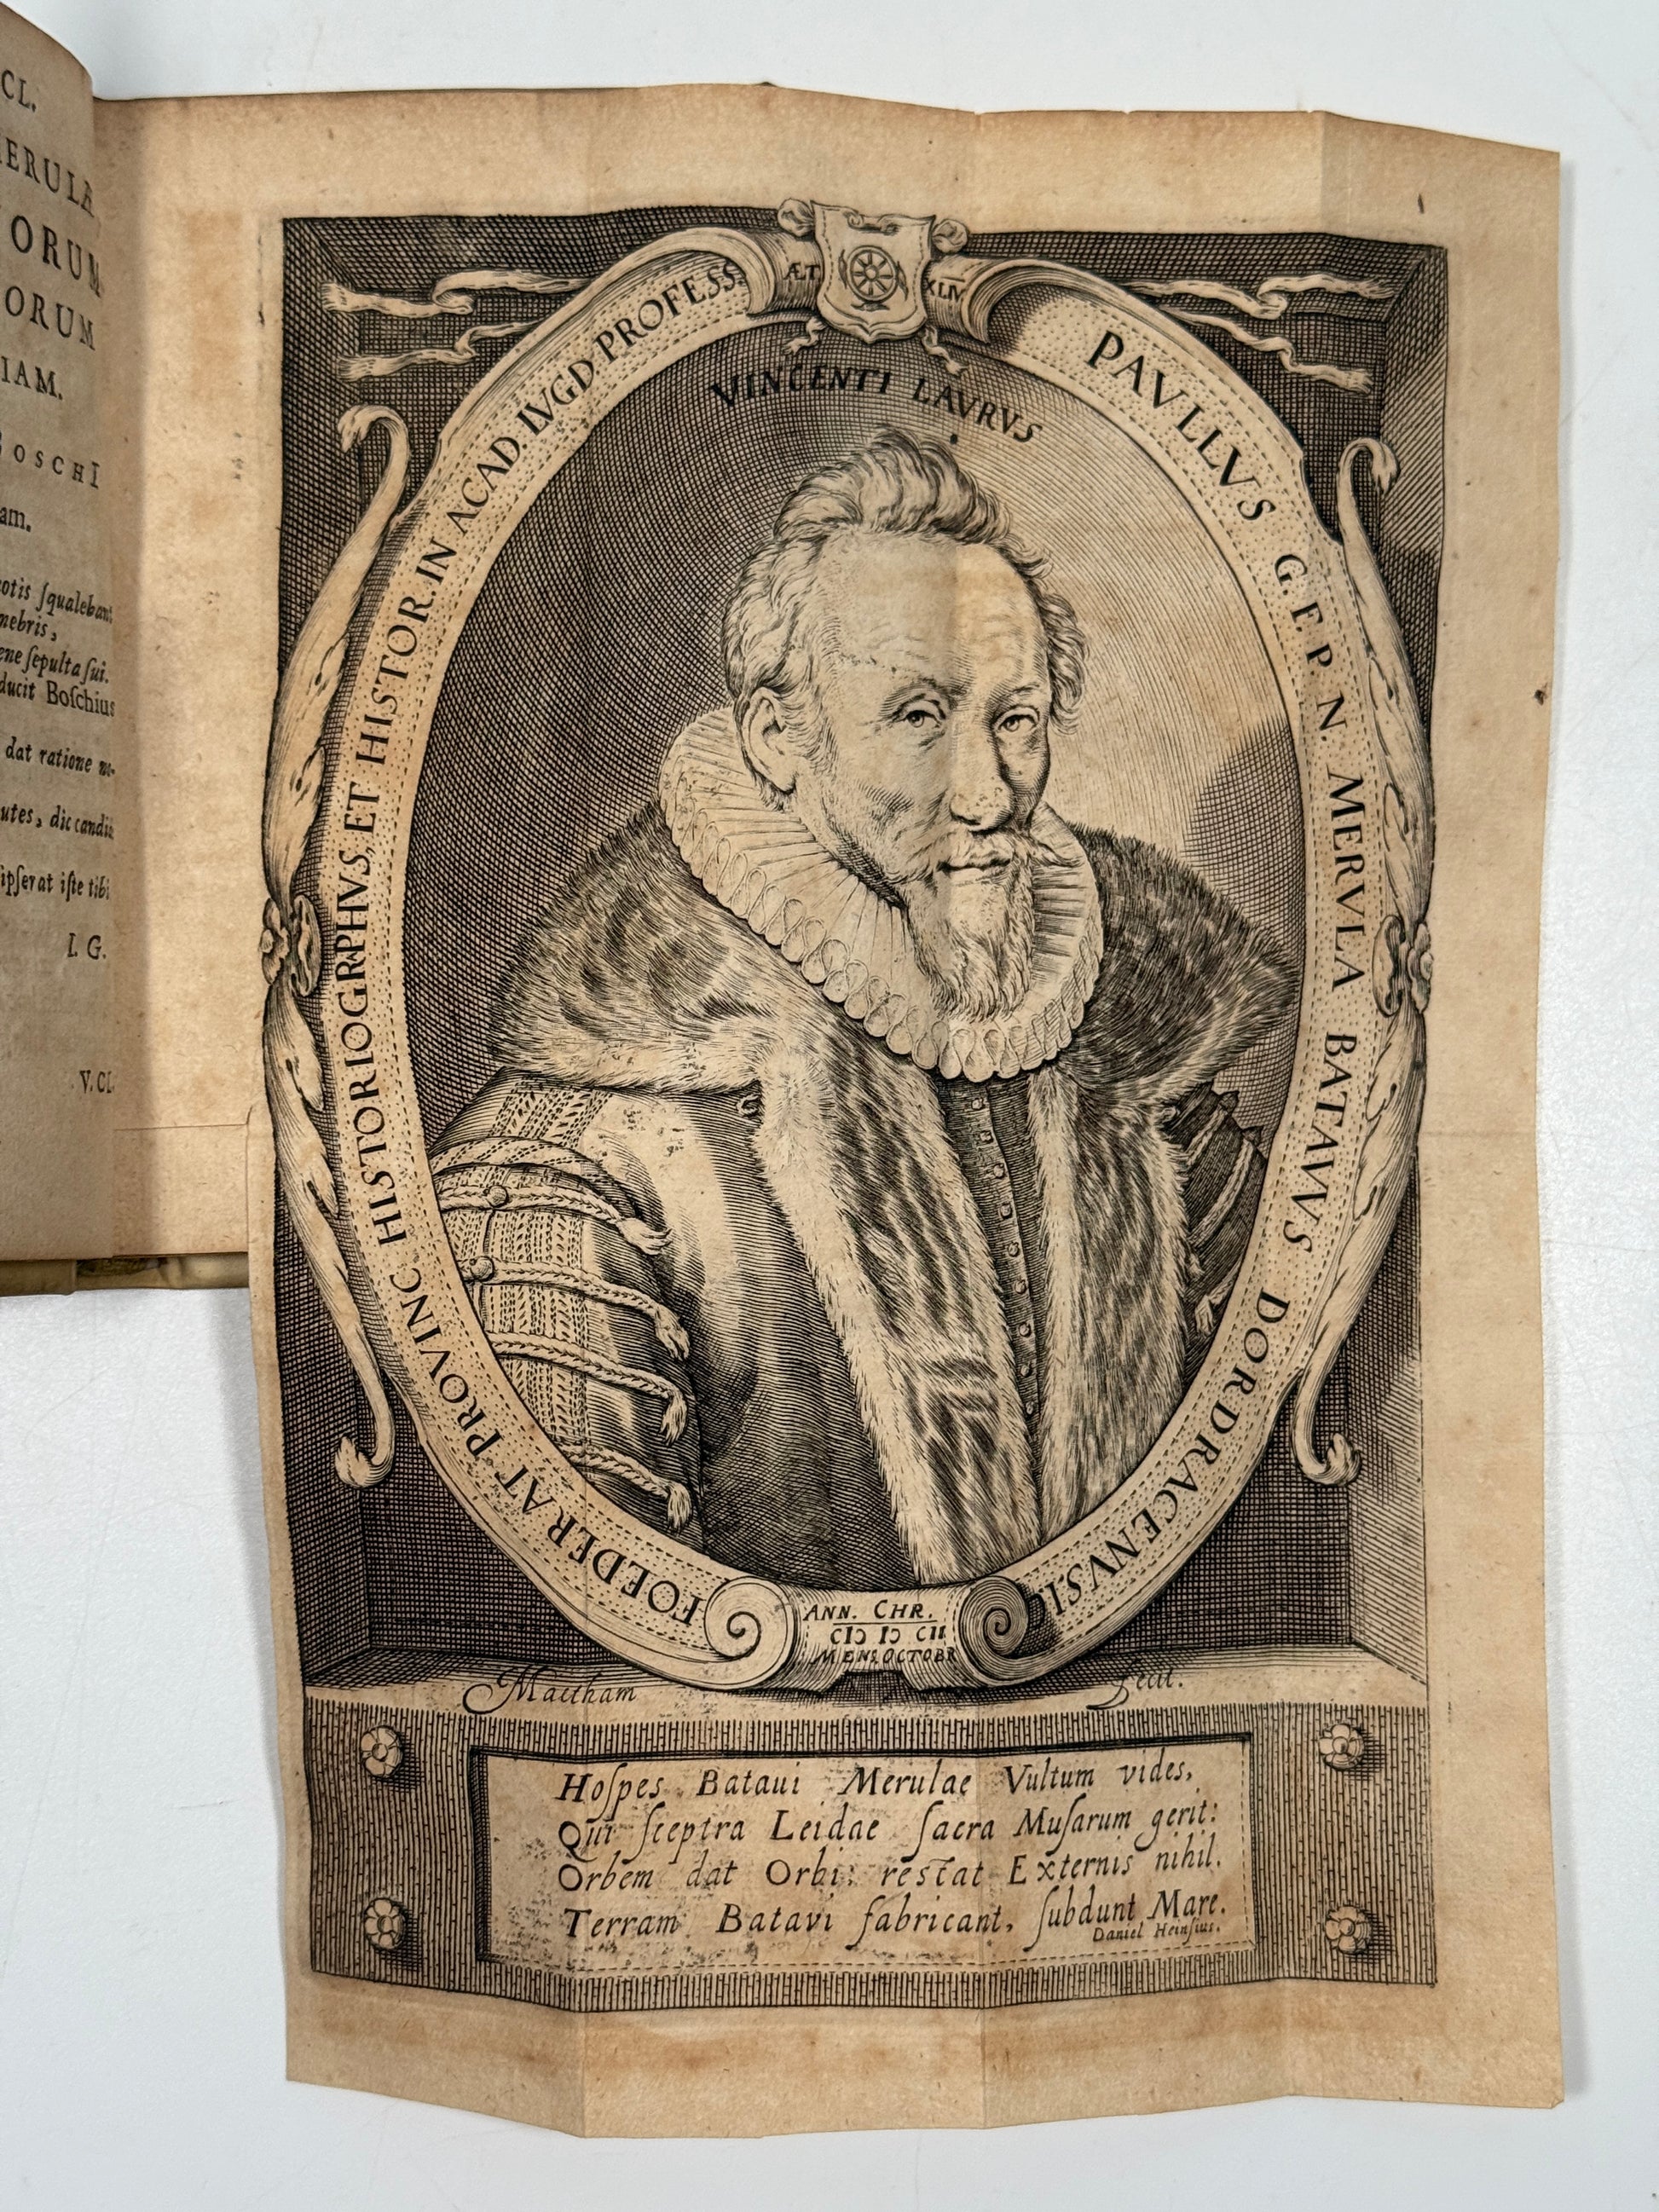 CL.
ORUM
ORUM
IAM.
am.
ſqualebant
ene ſepulta ſui.
ducit Boſchius
dat ratione
dic
iſte tibi
I. G.
V. CL.
ÆT. XLIV.
PAVLLVS G. F. P. N. MERVLA BATAVVS DORDRACENVSI.
FOEDERAT PROVINC HISTORIOGRPHVS, ET HISTOR. IN ACAD. LVGD PROFESS.
VINCENTI LAVRVS
ANN. CHR.
CIↃ IↃ CII
MENS. OCTOBR
Matham fecit.
Hoſpes Bataui Merulae Vultum vides,
Qui ſceptra Leidae ſacra Muſarum gerit:
Orbem dat Orbi: restat Externis nihil.
Terram Batavi fabricant, ſubdunt Mare.
Daniel Heinſius.